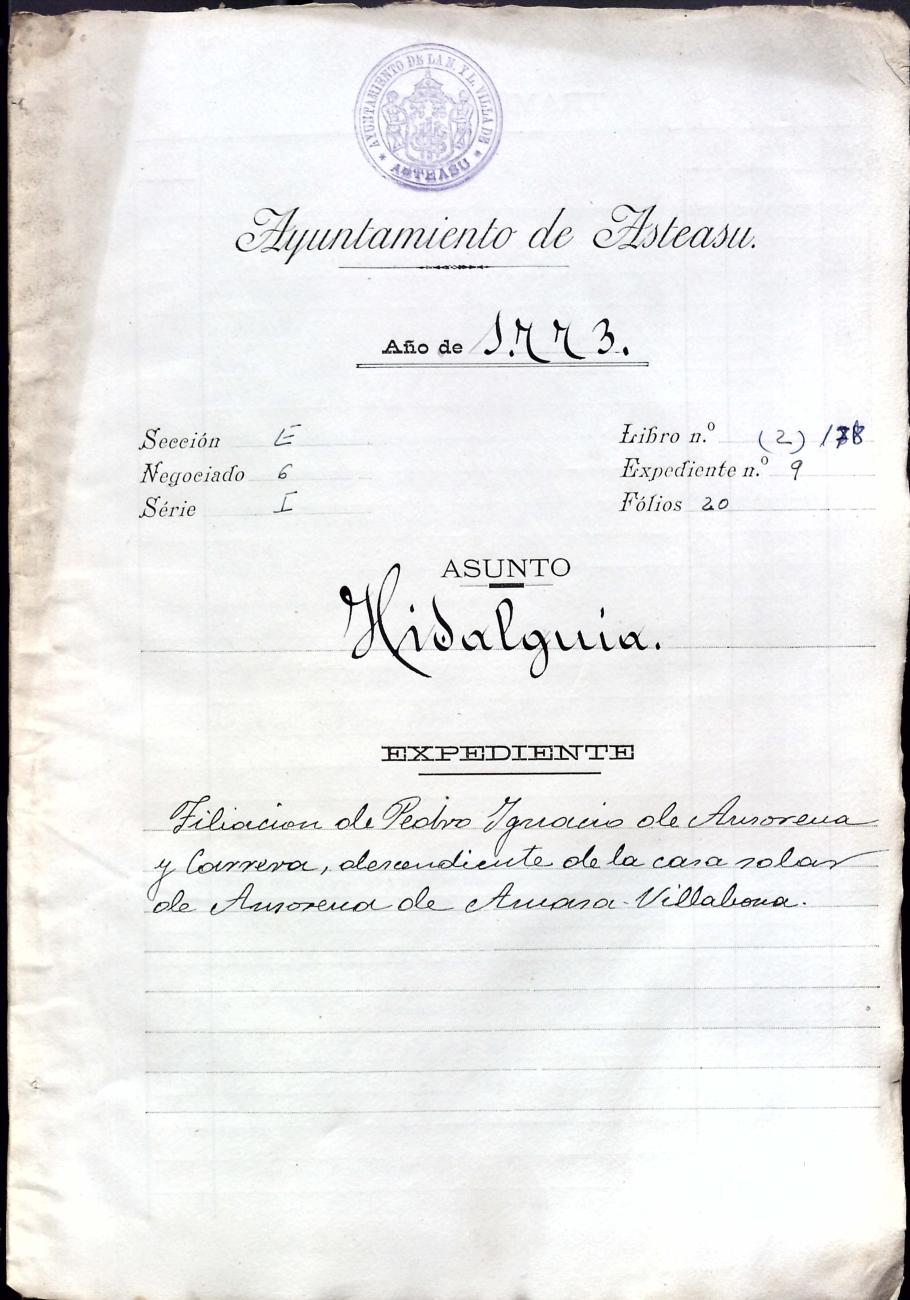 AYUNTAMIENTO DE LA N. Y L. VILLA DE
* ASTEASU *
Ayuntamiento de Asteasu.
Año de 1.773.
Sección E
Libro n.º (2)
Negociado 6
Expediente n.º 9
Série I
Fólios 20
ASUNTO
Hidalguia.
EXPEDIENTE
Filiacion de Pedro Ignacio de Ansorena
y Carrera, descendiente de la casa solar
de Ansorena de Amasa-Villabona.